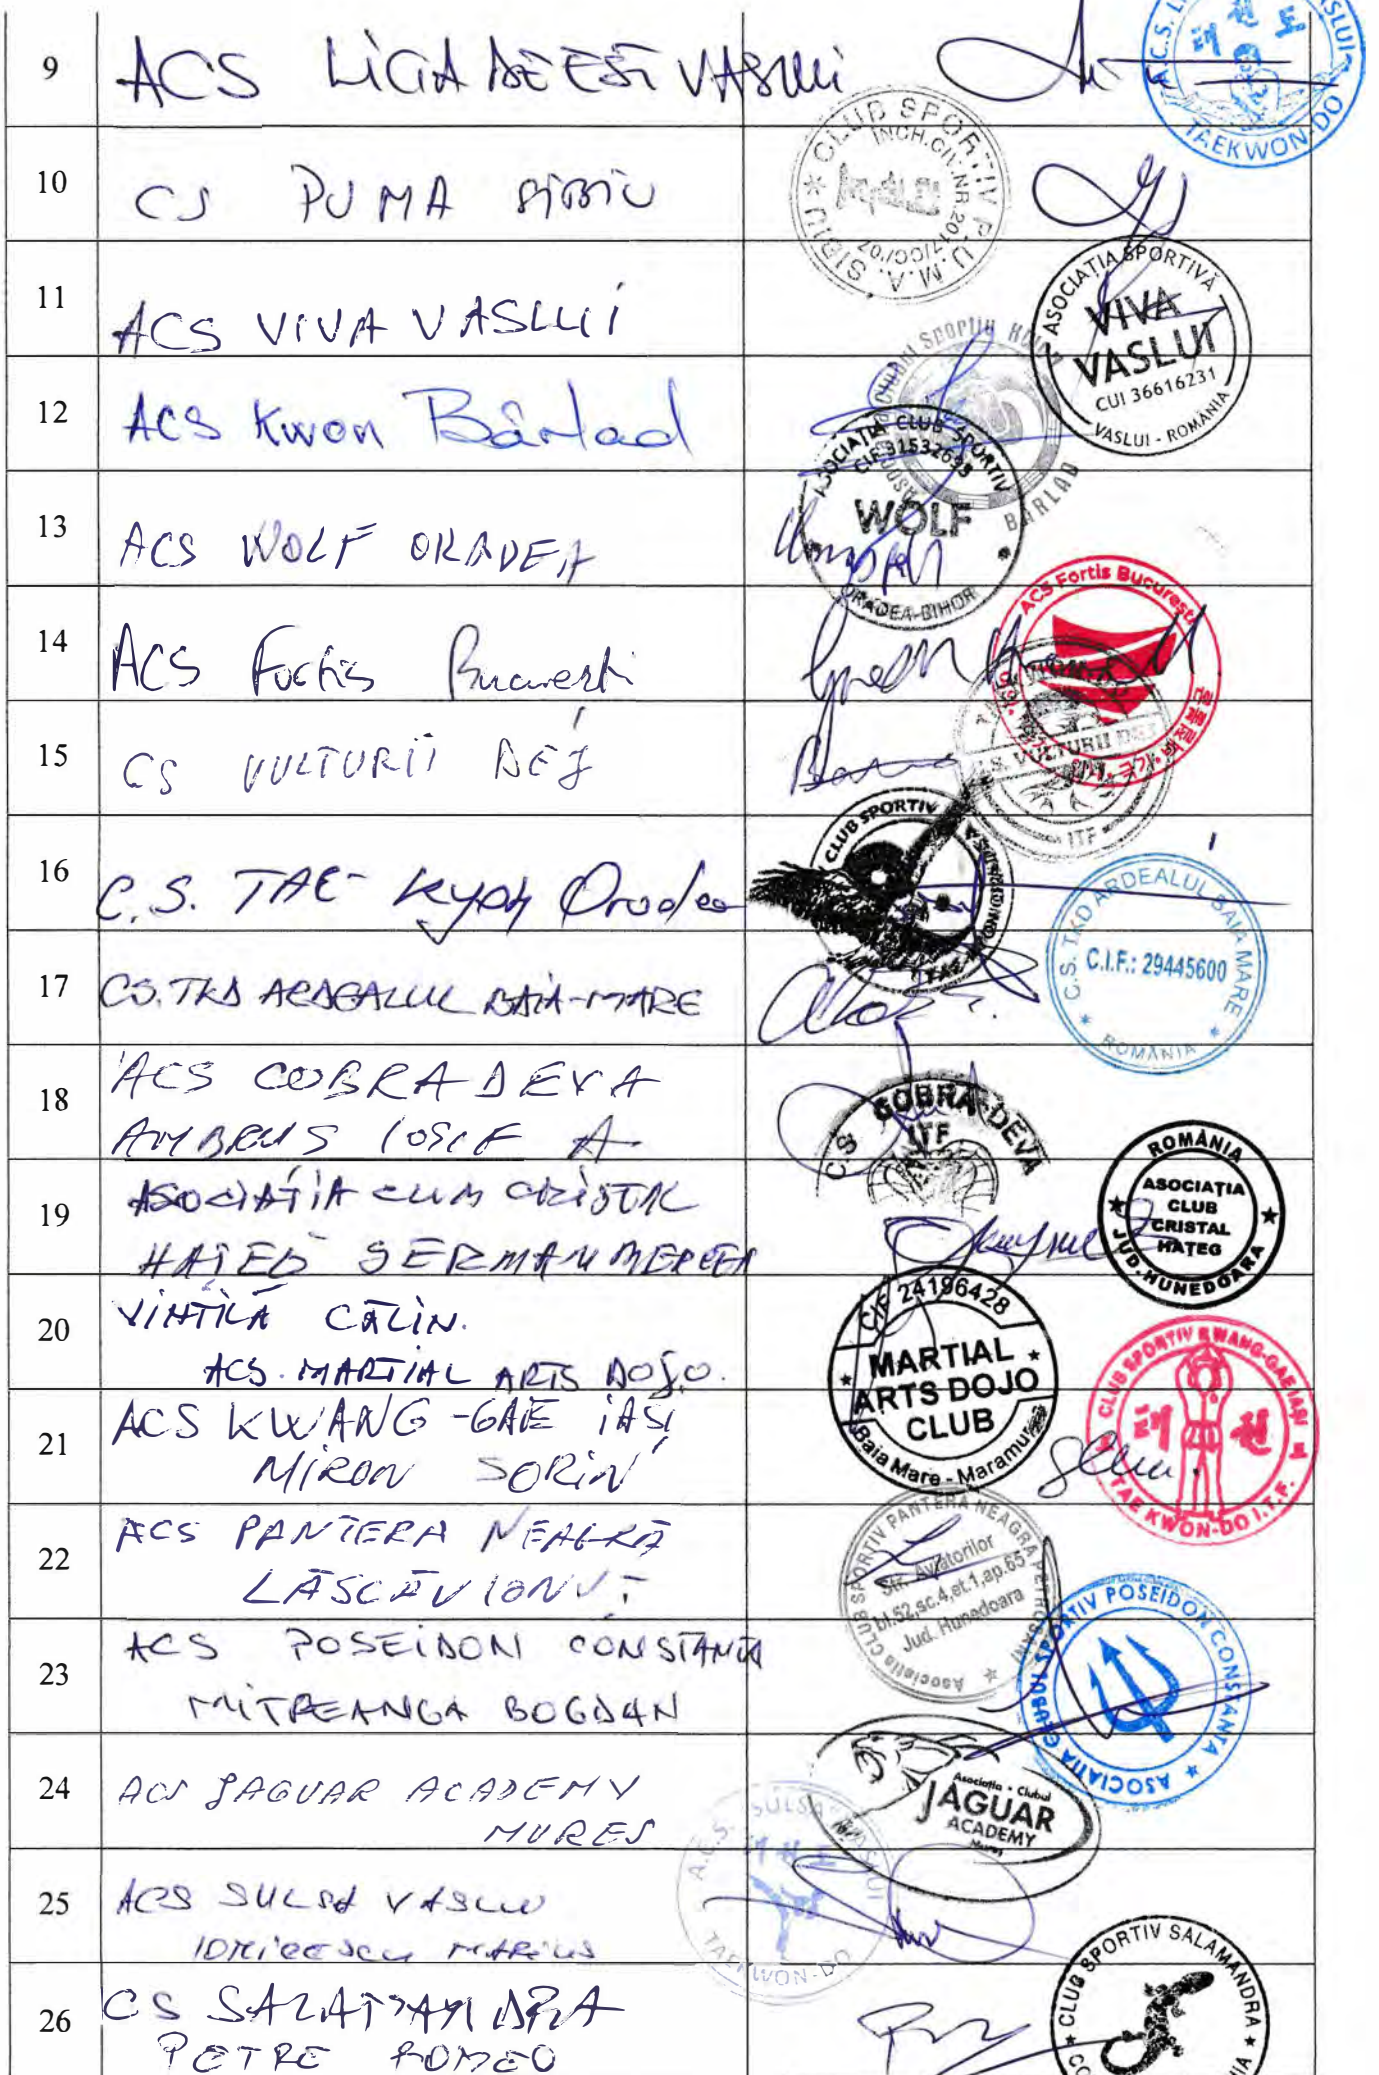 9 ACS LIGA DE EST VASLUI
A.C.S. VASLUI
태 권 도
TAEKWON-DO
10 CS PUMA SIBIU
CLUB SPORTIV P.U.M.A. SIBIU
INCH.CIV.NR.2017/CC/'07
11 ACS VIVA VASLUI
ASOCIAȚIA SPORTIVĂ
VIVA
VASLUI
CUI 36616231
VASLUI - ROMÂNIA
12 ACS Kwon Bârlad
Clubul Sportiv
BARLAD
13 ACS WOLF ORADEA
ASOCIAȚIA CLUB SPORTIV
CIF 31532695
WOLF
ORADEA-BIHOR
14 ACS Fortis Bucuresti
ACS Fortis Bucuresti
15 CS VULTURII DEJ
C.S. VULTURII DEJ
ITF
16 C.S. TAE-Kyon Oradea
CLUB SPORTIV
17 CS.TKD ARDEALUL BAIA-MARE
C.S. TKD ARDEALUL BAIA MARE
C.I.F.: 29445600
* ROMÂNIA *
18 ACS COBRA DEVA
AMBRUS IOSIF A
C.S. COBRA-DEVA
ITF
19 ASOCIAȚIA CLUB CRISTAL
HATEG SERMAN MERCEA
ROMÂNIA
ASOCIAȚIA
CLUB
CRISTAL
HAȚEG
JUD. HUNEDOARA
20 VINTILĂ CĂLIN.
ACS. MARTIAL ARTS DOJO.
CIF 24196428
MARTIAL
ARTS DOJO
CLUB
Baia Mare - Maramureș
21 ACS KWANG-GAE IAȘI
MIRON SORIN
CLUB SPORTIV KWANG-GAE IAȘI
태 권
TAE KWON-DO I.T.F.
22 ACS PANTERA NEAGRĂ
LĂSCĂU IONUȚ
Asociatia CLUB SPORTIV PANTERA NEAGRA PETROSANI
Str. Aviatorilor
bl.52,sc.4,et.1,ap.65
Jud. Hunedoara
23 ACS POSEIDON CONSTANȚA
MITREANGA BOGDAN
ASOCIAȚIA CLUBUL SPORTIV POSEIDON CONSTANȚA
24 ACS JAGUAR ACADEMY
MURES
Asociatia • Clubul
JAGUAR
ACADEMY
Mures
25 ACS SULSA VASLUI
IONICESCU MARIUS
A.C.S. SULSA VASLUI
태 권 도
TAEKWON-DO
26 CS SALAMANDRA
PETRE ROMEO
CLUB SPORTIV SALAMANDRA